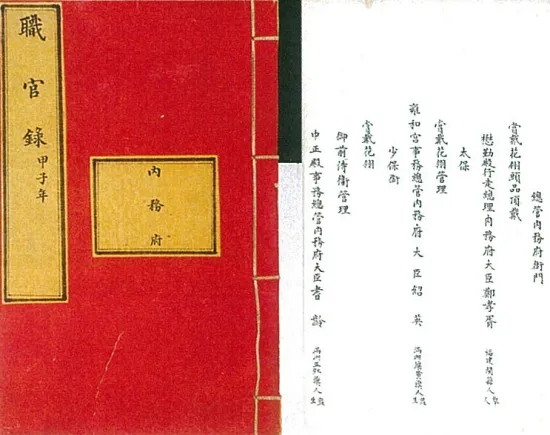 職官錄 甲子年
內務府
總管內務府衙門
賞戴花翎頭品頂戴
懋勤殿行走總理內務府大臣鄭孝胥 福建閩縣人
太保
賞戴花翎管理
雍和宮事務總管內務府大臣紹英 滿洲鑲黃旗人
少保銜
賞戴花翎
御前侍衛管理
中正殿事務總管內務府大臣耆齡 滿洲正紅旗人